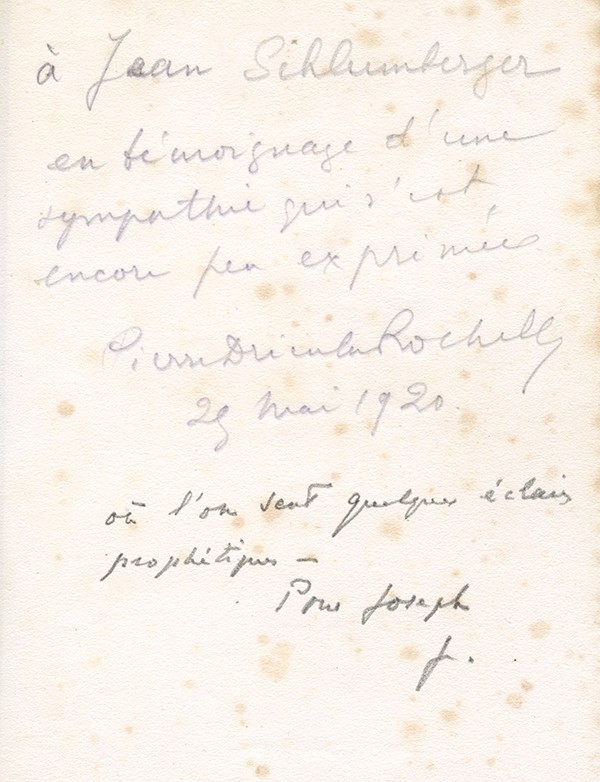 à Jean Schlumberger
en témoignage d'une
sympathie qui s'est
encore peu exprimée
Pierre Drieu la Rochelle
29 mai 1920
où l'on sent quelques éclairs
prophétiques —
Pour Joseph
J.